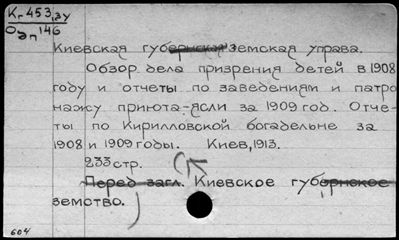 Кг 453,зу
Оэп 146
Киевская губернская земская управа.
Обзор дела призрения детей в 1908
году и отчеты по заведениям и патро
нажу приюта-ясли за 1909 год. Отче-
ты по Кирилловской богадельне за
1908 и 1909 годы. Киев, 1913.
233 стр.
Перед загл. Киевское губернское
земство.
604